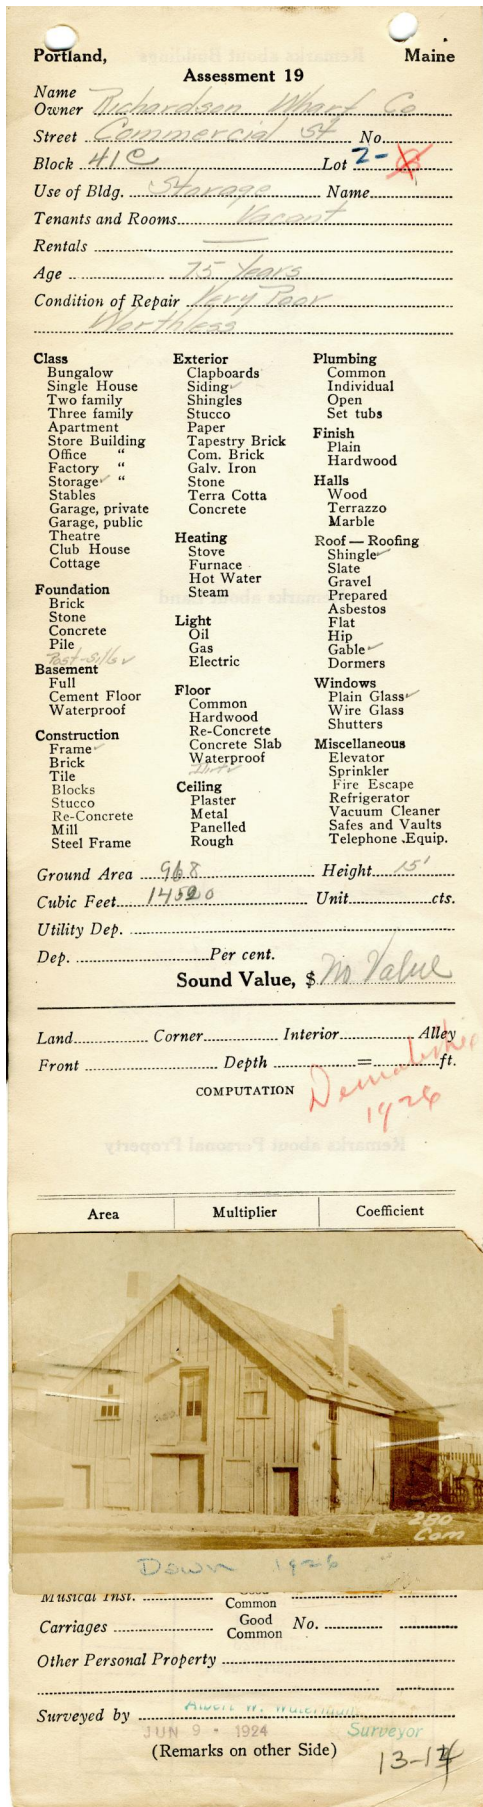 Portland, Maine
Assessment 19
Name
Owner Richardson Wharf Co
Street Commercial St No.
Block 41C Lot 2-
Use of Bldg. Storage Name
Tenants and Rooms Vacant
Rentals —
Age 75 Years
Condition of Repair Very Poor
Worthless
Class
Bungalow
Single House
Two family
Three family
Apartment
Store Building
Office "
Factory "
Storage ✓ "
Stables
Garage, private
Garage, public
Theatre
Club House
Cottage
Foundation
Brick
Stone
Concrete
Pile
Post-Sills ✓
Basement
Full
Cement Floor
Waterproof
Construction
Frame ✓
Brick
Tile
Blocks
Stucco
Re-Concrete
Mill
Steel Frame
Exterior
Clapboards
Siding ✓
Shingles
Stucco
Paper
Tapestry Brick
Com. Brick
Galv. Iron
Stone
Terra Cotta
Concrete
Heating
Stove
Furnace
Hot Water
Steam
Light
Oil
Gas
Electric
Floor
Common
Hardwood
Re-Concrete
Concrete Slab
Waterproof
Dirt ✓
Ceiling
Plaster
Metal
Panelled
Rough
Plumbing
Common
Individual
Open
Set tubs
Finish
Plain
Hardwood
Halls
Wood
Terrazzo
Marble
Roof — Roofing
Shingle ✓
Slate
Gravel
Prepared
Asbestos
Flat
Hip
Gable ✓
Dormers
Windows
Plain Glass ✓
Wire Glass
Shutters
Miscellaneous
Elevator
Sprinkler
Fire Escape
Refrigerator
Vacuum Cleaner
Safes and Vaults
Telephone Equip.
Ground Area 968 Height 15'
Cubic Feet 14520 Unit cts.
Utility Dep.
Dep. Per cent.
Sound Value, $ No Value
Land Corner Interior Alley
Front Depth = ft.
COMPUTATION
1926
Area Multiplier Coefficient
280
Com
Down 1926
Musical Inst. Good
Common
Carriages Good
Common No.
Other Personal Property
Surveyed by Albert W. Waterman
JUN 9 · 1924 Surveyor
(Remarks on other Side)